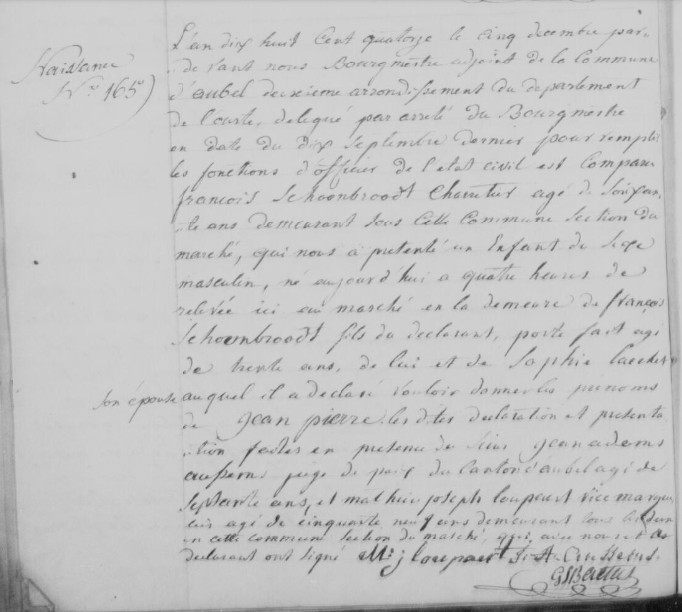 Naissance
N° 165
L'an dix huit Cent quatorze le cinq decembre par-
devant nous Bourgmestre adjoint de la Commune
d'aubel deuxieme arrondissement du departement
de l'ourte, delegué par arreté du Bourgmestre
en date du dix Septembre dernier pour remplir
les fonctions d'officier de l'etat civil est Comparu
françois Schoonbroodt agé de Soixan-
te ans demeurant Sous Cette Commune Section du
marché, qui nous a presenté un Enfant du Sexe
masculin, né aujourd'hui a quatre heures de
relevée ici au marché en la demeure de françois
Schoonbroodt fils du declarant, porte faix agé
de trente ans, de lui et de Sophie
Son épouse auquel il a declaré vouloir donner les prenoms
de jean pierre. les dites declaration et presenta
tion faites en presence de Sieur jean adams
juge de paix du Canton d'aubel agé de
Septante ans, et mathieu joseph loupart
agé de cinquante neuf ans demeurant tous les deux
en cette commune Section du marché, qui, avec nous et le
declarant ont signé M: j loupart